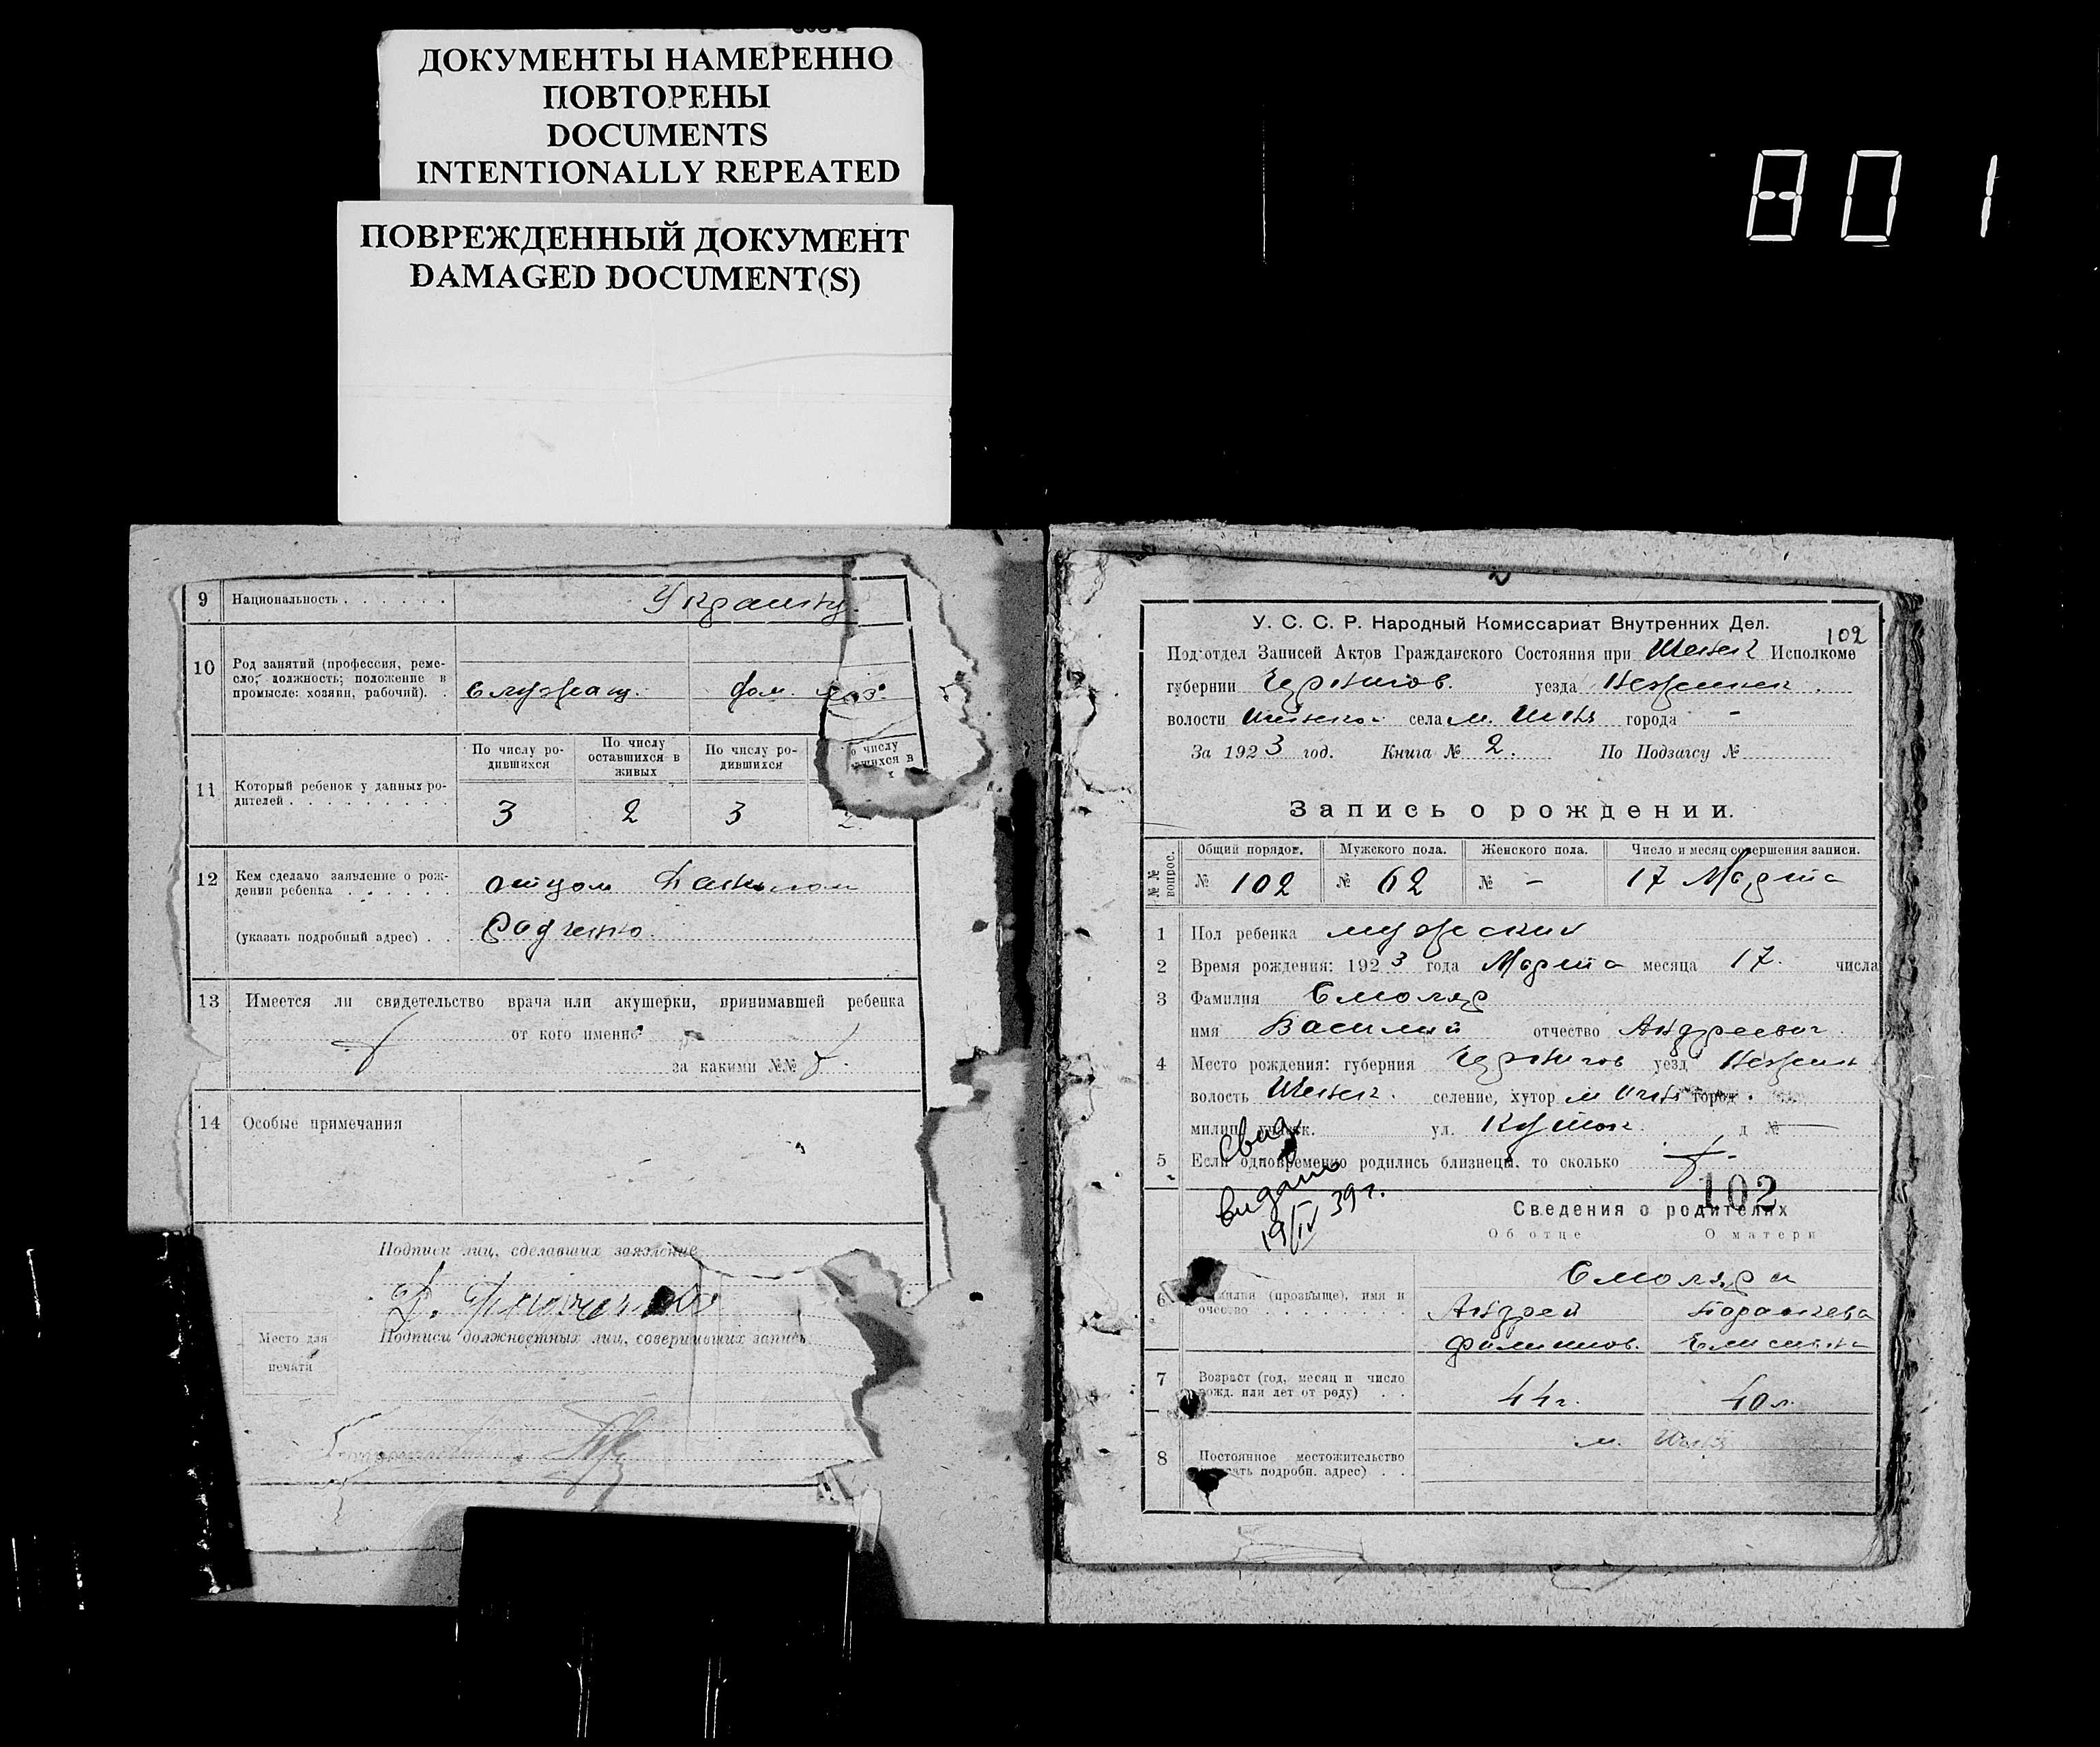 ДОКУМЕНТЫ НАМЕРЕННО
ПОВТОРЕНЫ
DOCUMENTS
INTENTIONALLY REPEATED
ПОВРЕЖДЕННЫЙ ДОКУМЕНТ
DAMAGED DOCUMENT(S)
801
9 Национальность . . . . . .
10 Род занятий (профессия, реме-
сло; должность; положение в
промысле: хозяин, рабочий). . служащ. дом. хоз.
По числу ро-
дившихся
По число
оставшихся в
живых
По числу ро-
дившихся
о числу
вшихся в
х
11 Который ребенок у данных ро-
дителей . . . . . . . . . 3 2 3 2
12 Кем сделано заявление о рож-
дении ребенка . . . . . . отцом Данилом
(указать подробный адрес) . . Радченко.
13 Имеется ли свидетельство врача или акушерки, принимавшей ребенка
от кого именно
за какими №№
14 Особые примечания
Подписи лиц, сделавших заявление
Подписи должностных лиц, совершивших запись
Место для
печати
У. С. С. Р. Народный Комиссариат Внутренних Дел.
102
Под'отдел Записей Актов Гражданского Состояния при Исполкоме
губернии Чернигов. уезда Нежинск
волости села м. города -
За 1923 год. Книга № 2. По Подзагсу №
Запись о рождении.
№ № вопрос.
Общий порядок. Мужского пола. Женского пола. Число и месяц совершения записи.
№ 102 № 62 № - 17 Марта
1 Пол ребенка мужеский
2 Время рождения: 1923 года Марта месяца 17. числа
3 Фамилия Смоляр
имя Василий отчество Андреевич
4 Место рождения: губерния Чернигов уезд Нежин
волость селение, хутор м город
милиц. участк. ул. д №
5 Если одновременно родились близнецы, то сколько
Свид
видано
19/IV 39 г.
102
Сведения о родителях
Об отце О матери
6 милия (прозвище), имя и
очество . . . . . . . . . Смоляр
Андрей
Филипов.
7 Возраст (год, месяц и число
рожд. или лет от роду) . . 44 г. 40 л.
8 Постоянное местожительство
подробн. адрес) . . м.